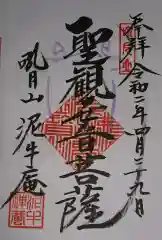 奉拝
令和二年四月二十九日
聖觀世音菩薩
吼月山 泥牛庵